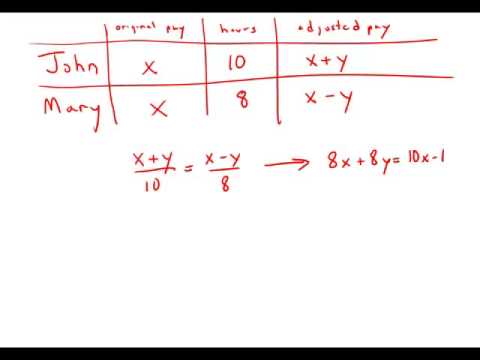 original pay hours adjusted pay
John x 10 x+y
Mary x 8 x-y
x+y/10 = x-y/8 → 8x+8y=10x-1